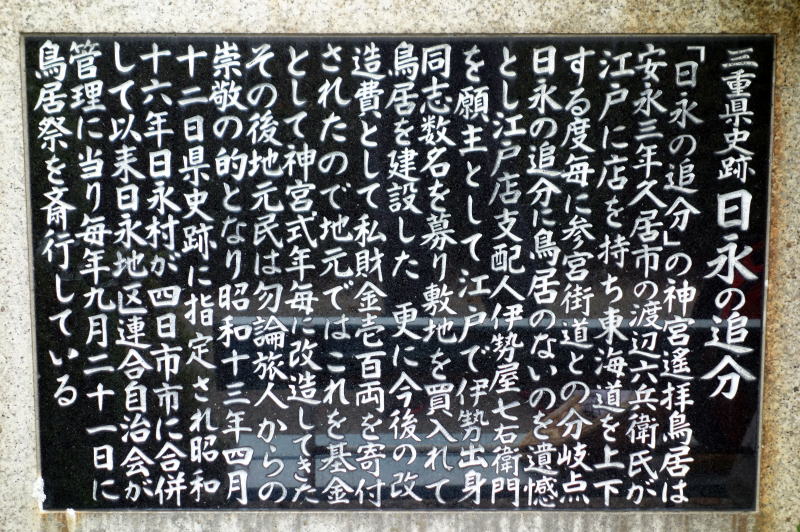 三重県史跡 日永の追分
「日永の追分」の神宮遙拝鳥居は
安永三年久居市の渡辺六兵衛氏が
江戸に店を持ち東海道を上下
する度毎に参宮街道との分岐点
日永の追分に鳥居のないのを遺憾
とし江戸店支配人伊勢屋七右衛門
を願主として江戸で伊勢出身
同志数名を募り敷地を買入れて
鳥居を建設した 更に今後の改
造費として私財金壱百両を寄付
されたので地元ではこれを基金
として神宮式年毎に改造してきた
その後地元民は勿論旅人からの
崇敬の的となり昭和十三年四月
十二日県史跡に指定され昭和
十六年日永村が四日市市に合併
して以来日永地区連合自治会が
管理に当り毎年九月二十一日に
鳥居祭を斎行している